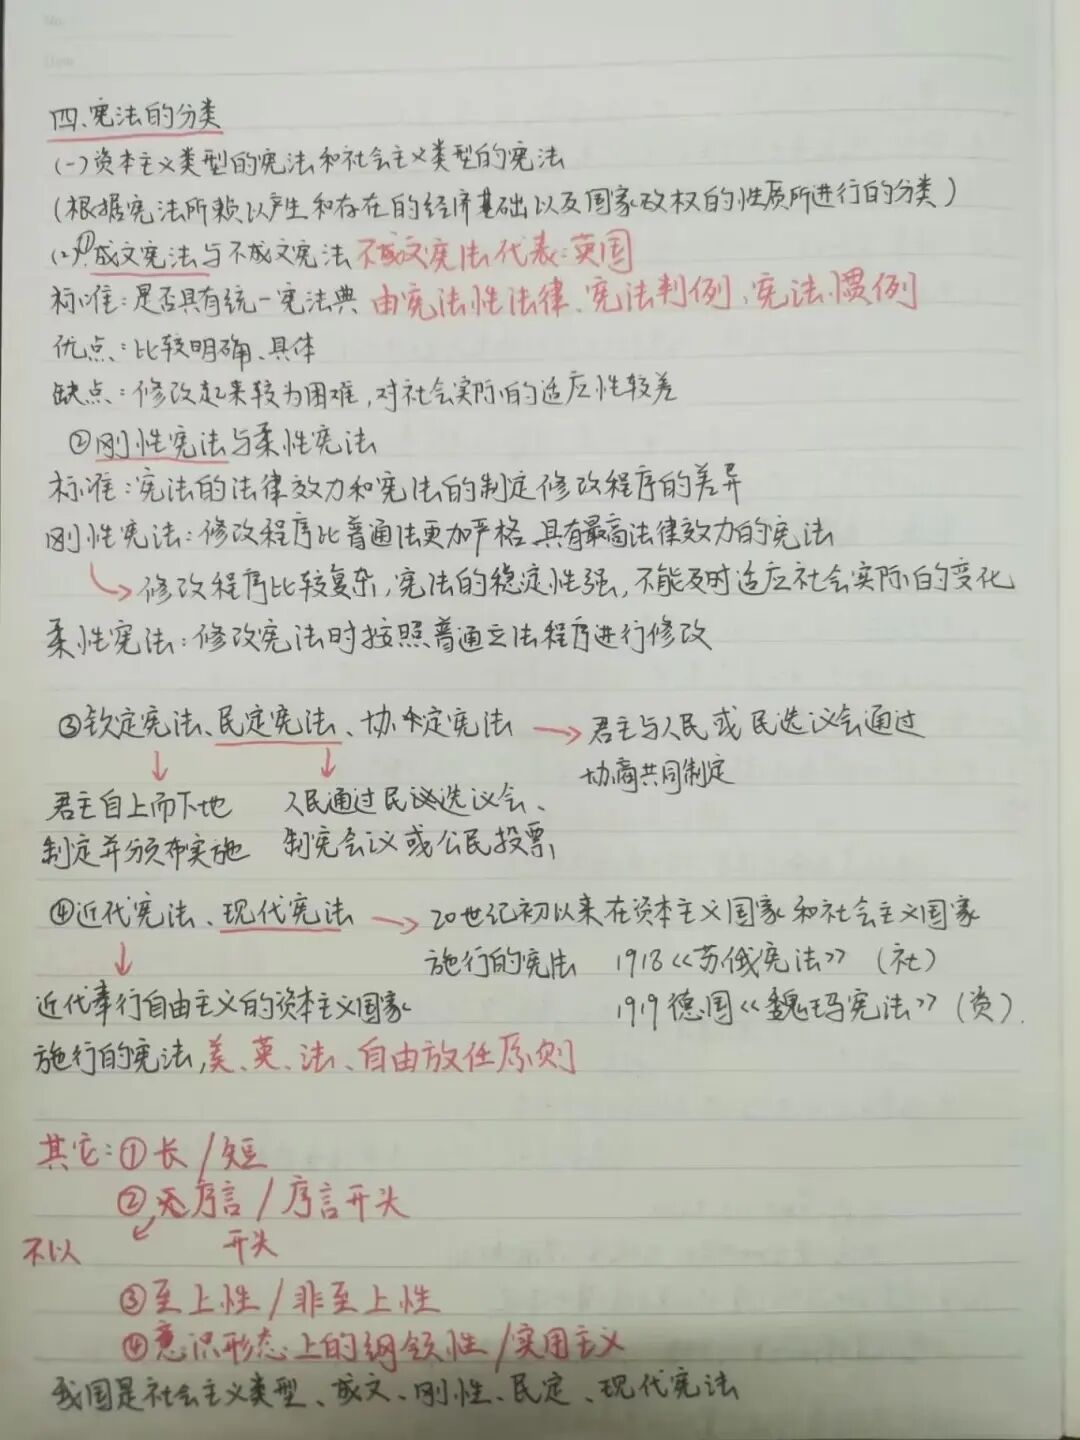 四、宪法的分类
(一)资本主义类型的宪法和社会主义类型的宪法
(根据宪法所赖以产生和存在的经济基础以及国家政权的性质所进行的分类)
(2)①成文宪法与不成文宪法 不成文宪法代表:英国
标准:是否具有统一宪法典 由宪法性法律、宪法判例、宪法惯例
优点:比较明确、具体
缺点:修改起来较为困难,对社会实际的适应性较差
②刚性宪法与柔性宪法
标准:宪法的法律效力和宪法的制定修改程序的差异
刚性宪法:修改程序比普通法更加严格、具有最高法律效力的宪法
修改程序比较复杂,宪法的稳定性强,不能及时适应社会实际的变化
柔性宪法:修改宪法时按照普通立法程序进行修改
③钦定宪法、民定宪法、协定宪法 → 君主与人民或民选议会通过
协商共同制定
君主自上而下地 人民通过民选议会、
制定并颁布实施 制宪会议或公民投票
④近代宪法、现代宪法 → 20世纪初以来在资本主义国家和社会主义国家
施行的宪法 1918《苏俄宪法》(社)
近代奉行自由主义的资本主义国家 1919德国《魏玛宪法》(资).
施行的宪法,美、英、法、自由放任原则
其它:①长/短
②无序言/序言开头
不以 开头
③至上性/非至上性
④意识形态上的纲领性/实用主义
我国是社会主义类型、成文、刚性、民定、现代宪法